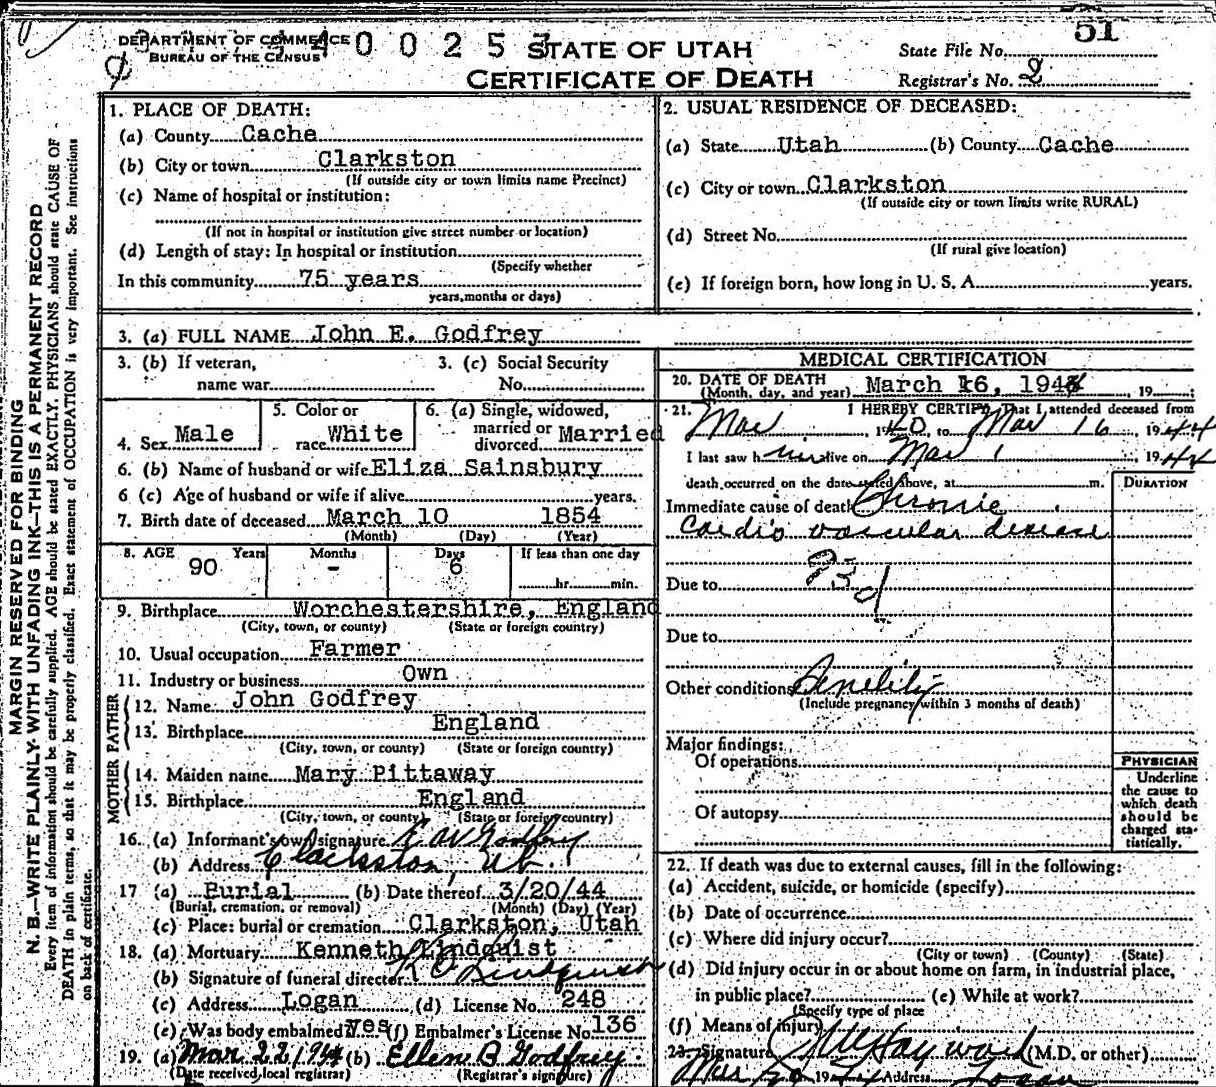 51
DEPARTMENT OF COMMERCE
BUREAU OF THE CENSUS
STATE OF UTAH
CERTIFICATE OF DEATH
State File No.
Registrar's No. 2
MARGIN RESERVED FOR BINDING
N. B.—WRITE PLAINLY WITH UNFADING INK—THIS IS A PERMANENT RECORD
Every item of information should be carefully supplied. AGE should be stated EXACTLY. PHYSICIANS should state CAUSE OF
DEATH in plain terms, so that it may be properly classified. Exact statement of OCCUPATION is very important. See instructions
on back of certificate.
1. PLACE OF DEATH:
(a) County Cache
(b) City or town Clarkston
(If outside city or town limits name Precinct)
(c) Name of hospital or institution:
(If not in hospital or institution give street number or location)
(d) Length of stay: In hospital or institution
(Specify whether
In this community 75 years
years, months or days)
2. USUAL RESIDENCE OF DECEASED:
(a) State Utah (b) County Cache
(c) City or town Clarkston
(If outside city or town limits write RURAL)
(d) Street No.
(If rural give location)
(e) If foreign born, how long in U. S. A. years.
3. (a) FULL NAME John E. Godfrey
3. (b) If veteran, 3. (c) Social Security
name war No.
4. Sex Male 5. Color or race White 6. (a) Single, widowed, married or divorced Married
6. (b) Name of husband or wife Eliza Sainsbury
6 (c) Age of husband or wife if alive years.
7. Birth date of deceased March 10 1854
(Month) (Day) (Year)
8. AGE Years Months Days If less than one day
90 - 6 hr. min.
9. Birthplace Worchestershire, England
(City, town, or county) (State or foreign country)
10. Usual occupation Farmer
11. Industry or business Own
FATHER
12. Name John Godfrey
13. Birthplace England
(City, town, or county) (State or foreign country)
MOTHER
14. Maiden name Mary Pittaway
15. Birthplace England
(City, town, or county) (State or foreign country)
16. (a) Informant's own signature Godfrey
(b) Address Clarkston, Ut.
17 (a) Burial (b) Date thereof 3/20/44
(Burial, cremation, or removal) (Month) (Day) (Year)
(c) Place: burial or cremation Clarkston, Utah
18. (a) Mortuary Kenneth Lindquist
(b) Signature of funeral director Lindquist
(c) Address Logan (d) License No. 248
(e) Was body embalmed? yes (f) Embalmer's License No. 136
19. (a) Mar 22, 1944 (b) Ellen B Godfrey
(Date received local registrar) (Registrar's signature)
MEDICAL CERTIFICATION
20. DATE OF DEATH
(Month, day, and year) March 16, 1944, 19 ;
21. I HEREBY CERTIFY, That I attended deceased from
Mar , 1940, to Mar 16 , 1944
I last saw him alive on Mar 1 , 1944
death occurred on the date stated above, at m. DURATION
Immediate cause of death Chronic
Cardio vascular disease
Due to 93d
Due to
Other conditions Senility
(Include pregnancy within 3 months of death)
Major findings:
Of operations
Of autopsy
PHYSICIAN
Underline
the cause to
which death
should be
charged sta-
tistically.
22. If death was due to external causes, fill in the following:
(a) Accident, suicide, or homicide (specify)
(b) Date of occurrence
(c) Where did injury occur?
(City or town) (County) (State)
(d) Did injury occur in or about home on farm, in industrial place,
in public place? (e) While at work?
(Specify type of place
(f) Means of injury
23. Signature Hayward (M.D. or other)
Mar 20 1944 Address Logan